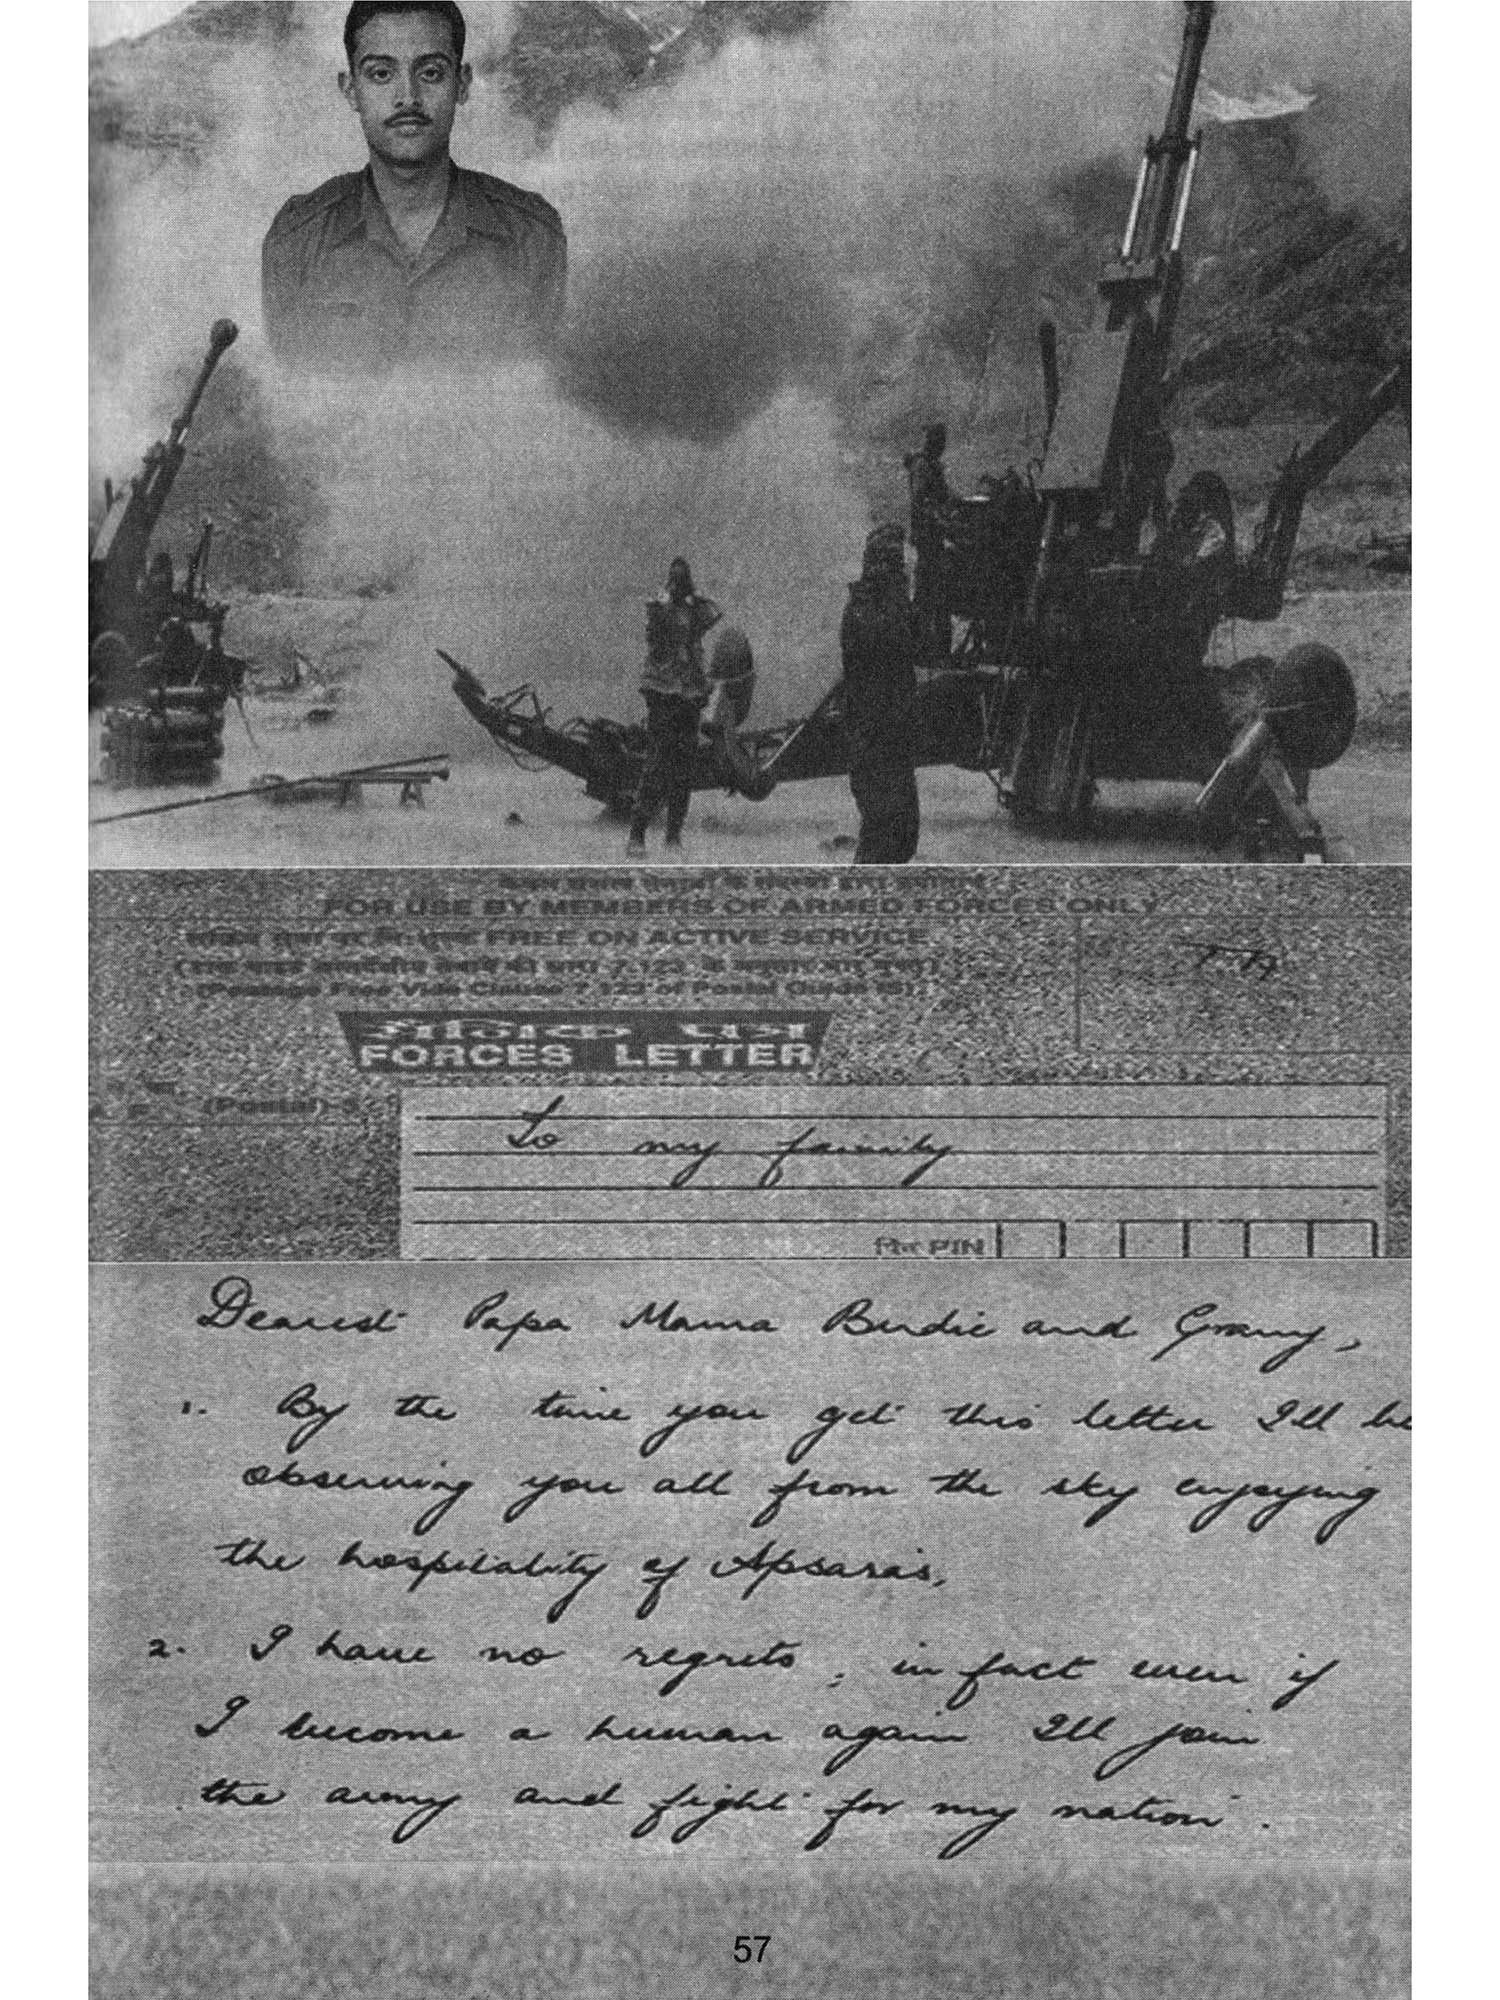 FOR USE BY MEMBERS OF ARMED FORCES ONLY
FREE ON ACTIVE SERVICE
(Postage Free Vide Clause 7.123 of Postal Guide
पत्र
FORCES LETTER
(Postal)
To my family
पिन PIN
Dearest Papa Mama Birdie and Granny,
1. By the time you get this letter I'll be
observing you all from the sky enjoying
the hospitality of Apsaras.
2. I have no regrets, in fact even if
I become a human again I'll join
the army and fight for my nation.
57